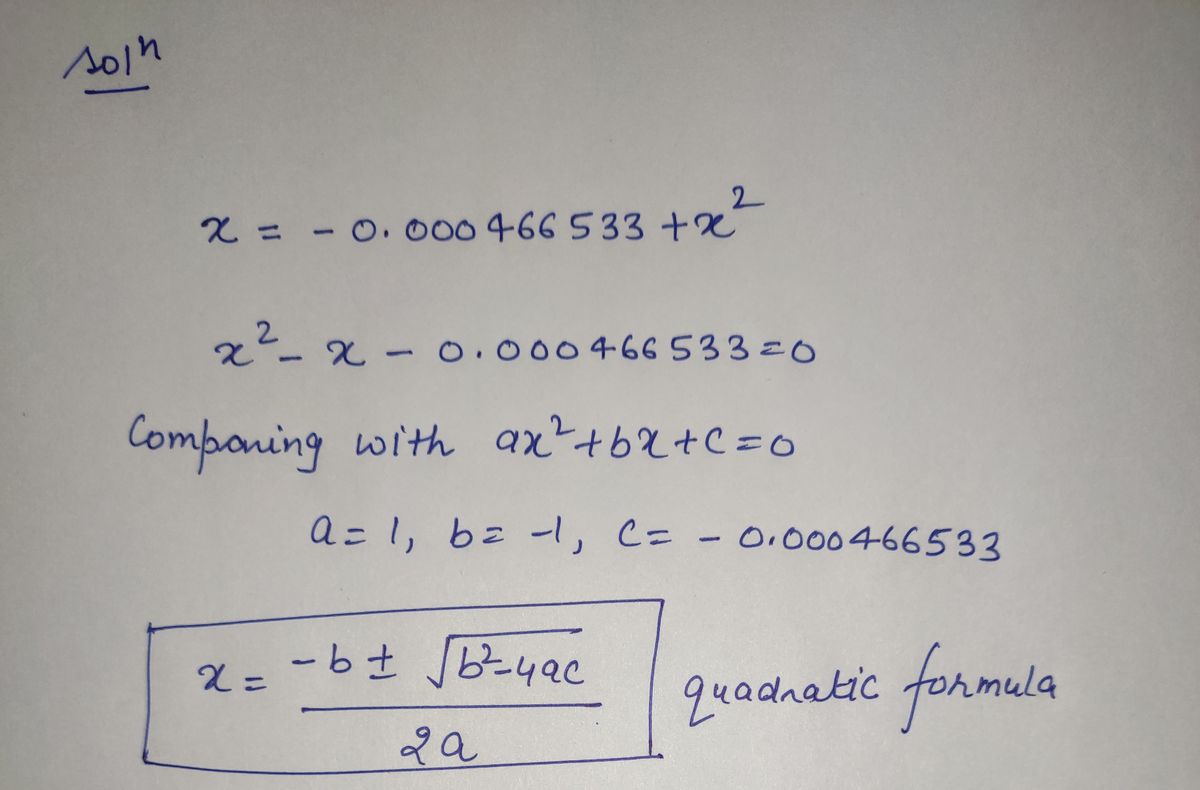 Solⁿ
x = - 0.000466533 + x²
x² - x - 0.000466533 = 0
Comparing with ax² + bx + c = 0
a = 1, b = -1, c = - 0.000466533
x = -b ± √b²-4ac / 2a quadratic formula